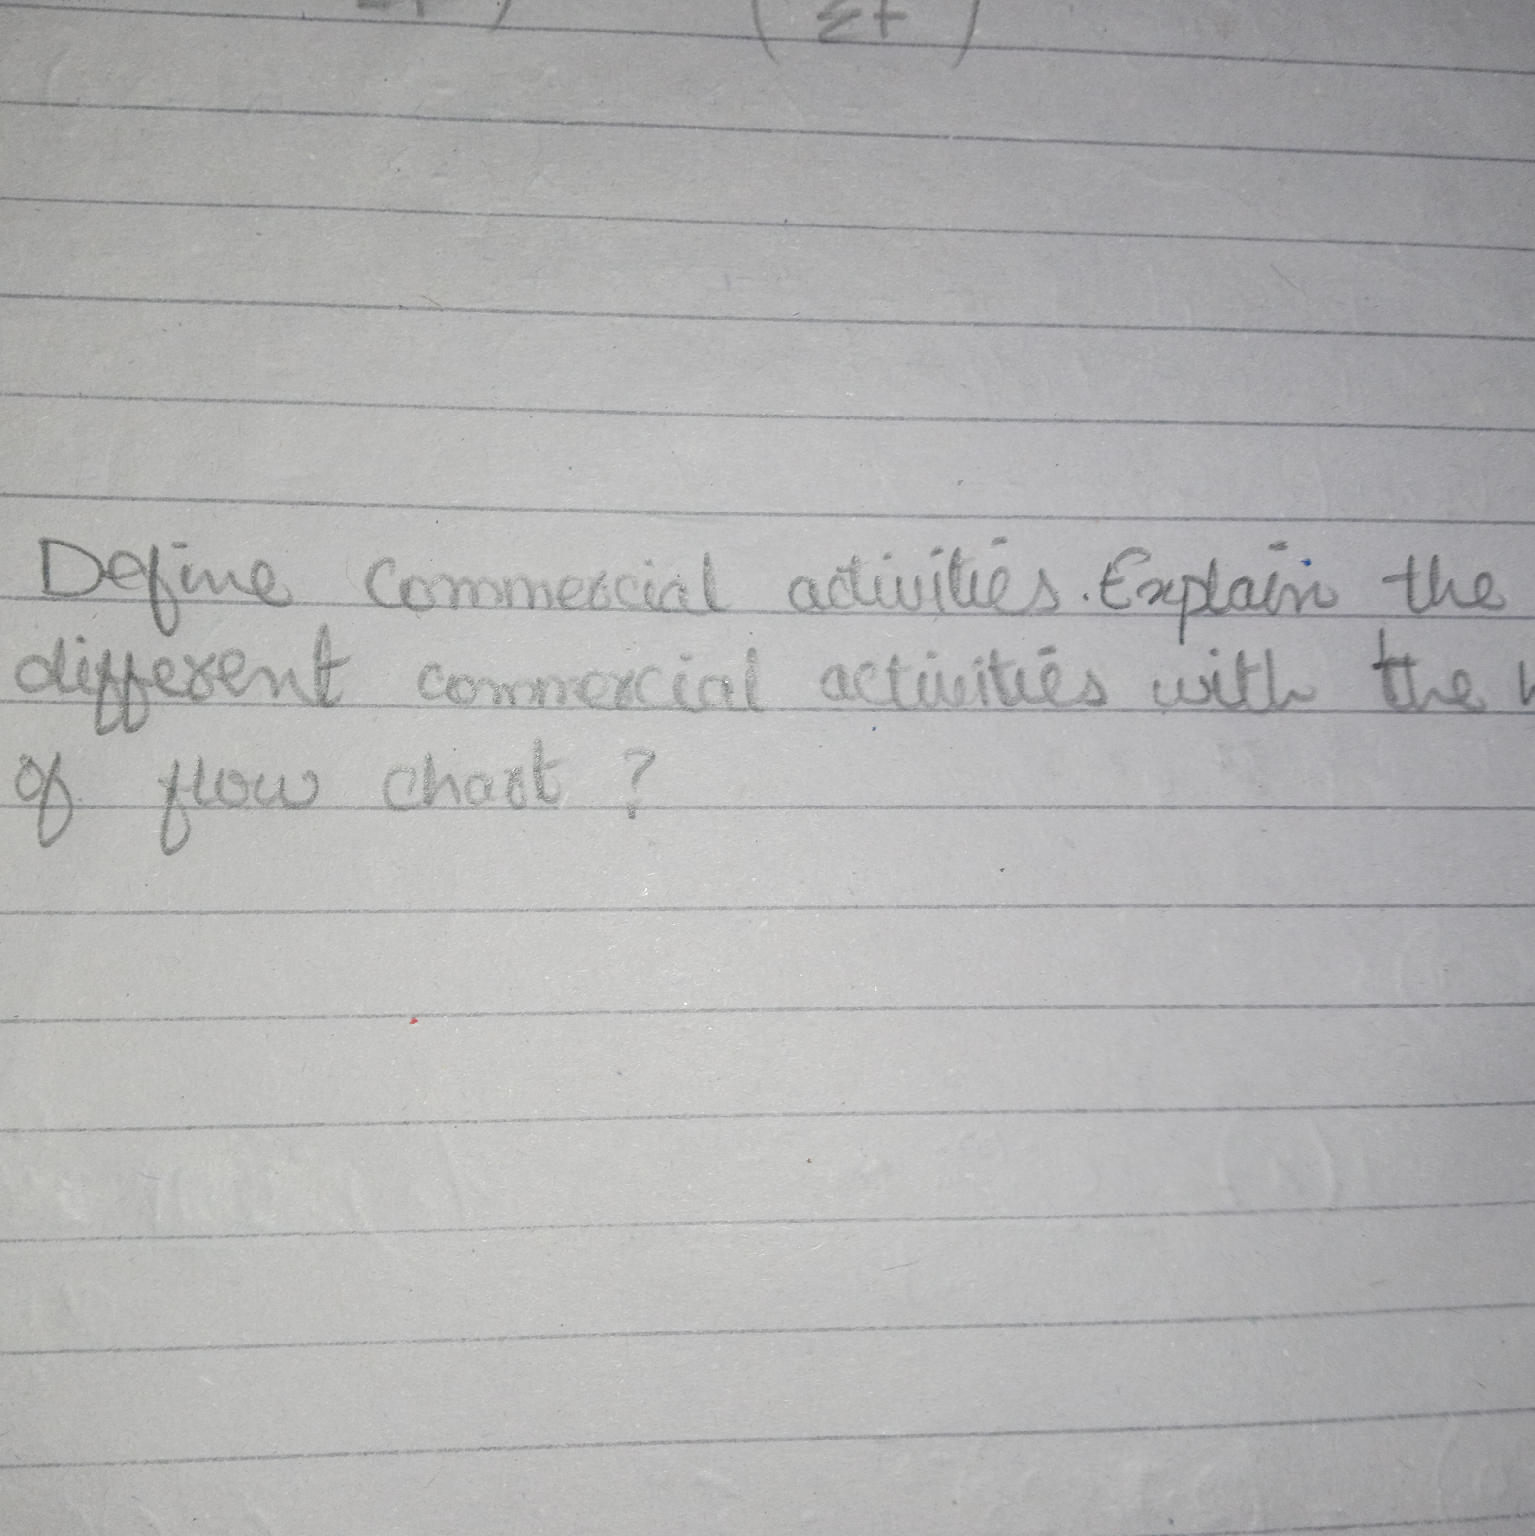 Σf
Define commercial activities. Explain the
different commercial activities with the
of flow chart ?